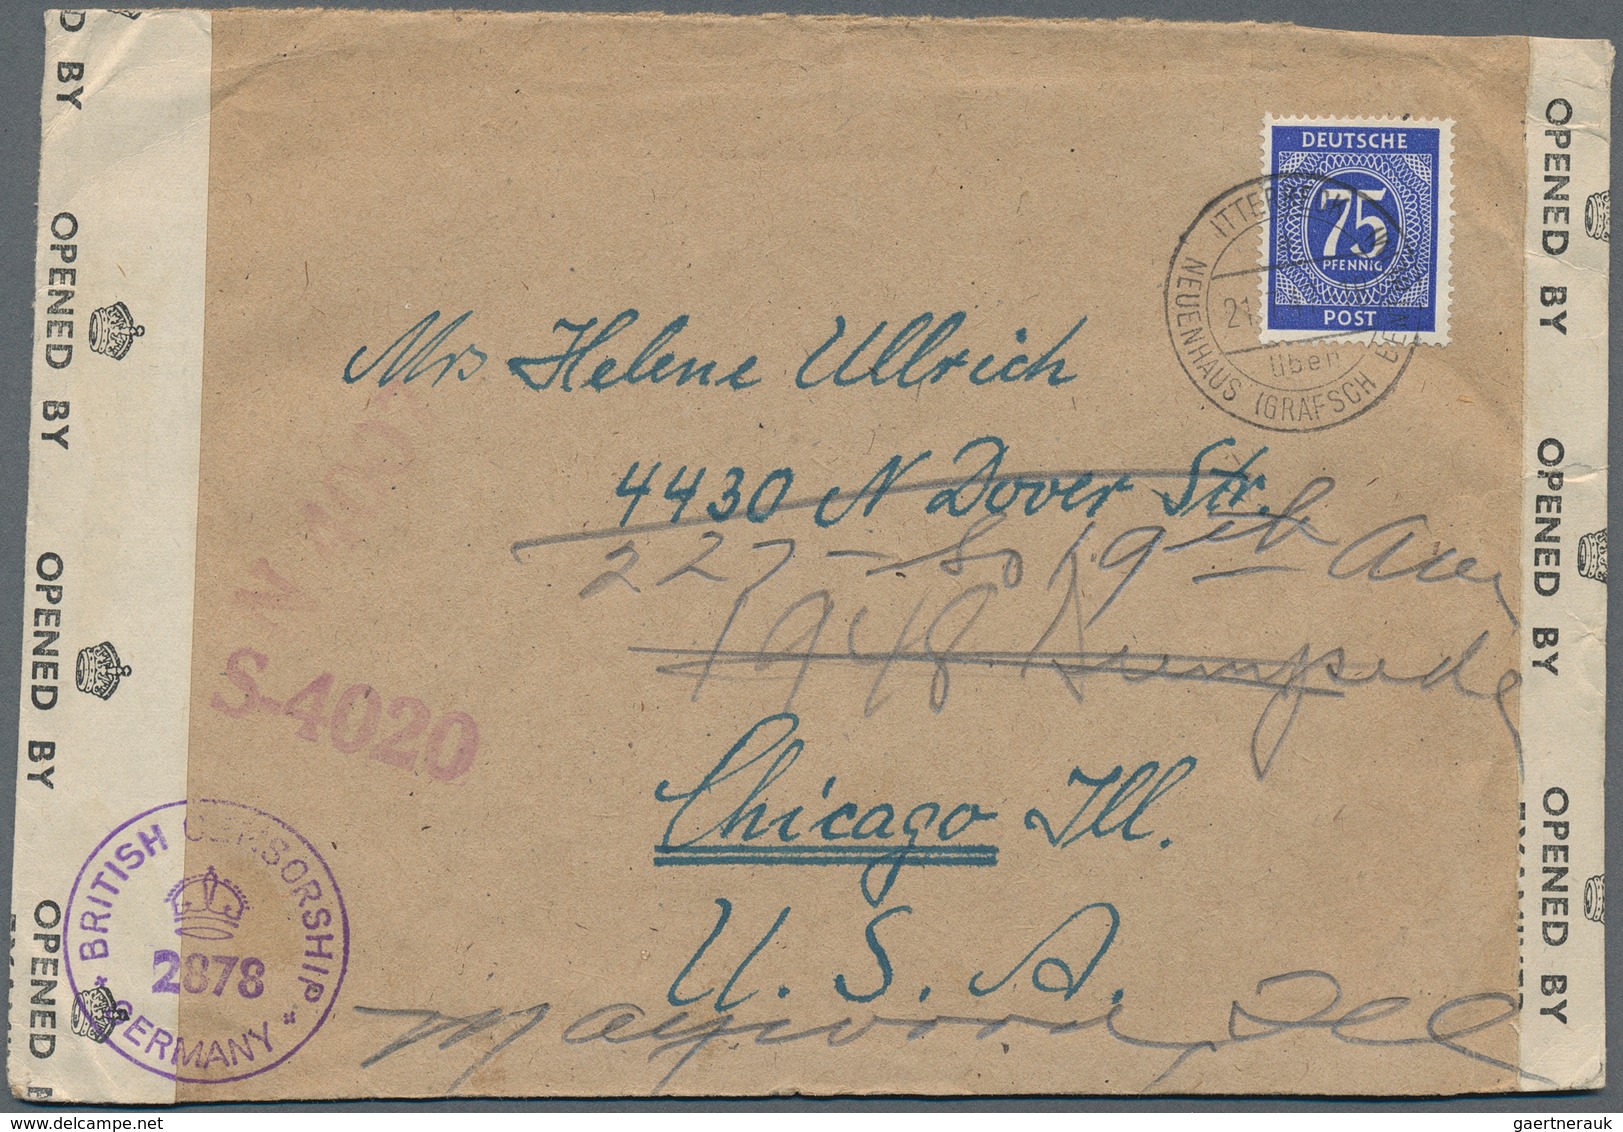 OPENED BY
OPENED BY
OPENED BY
OPENED BY
DEUTSCHE
75
PFENNIG
POST
NEUENHAUS (GRAFSCH BEN
21
üben
Mrs Helene Ullrich
4430 N Dover Str.
227 - So 19th Ave
1948
Chicago Ill.
U. S. A.
Maywood, Ill
S-4020
BRITISH CENSORSHIP
2878
GERMANY
OPENED BY
OPENED BY
OPENED BY
gaertnerauk